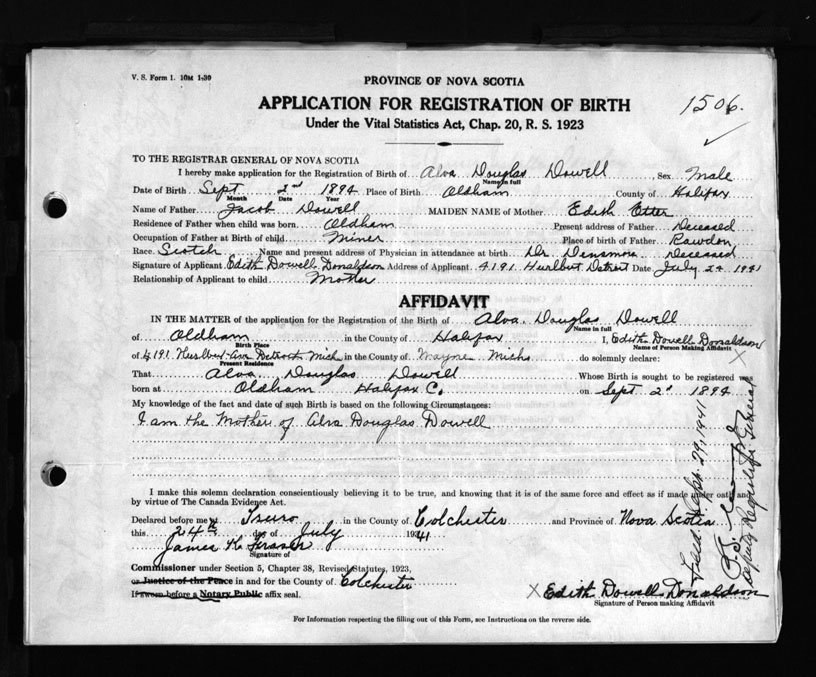 V. S. Form 1. 10M 1-30
PROVINCE OF NOVA SCOTIA
APPLICATION FOR REGISTRATION OF BIRTH
1506.
Under the Vital Statistics Act, Chap. 20, R. S. 1923
TO THE REGISTRAR GENERAL OF NOVA SCOTIA
I hereby make application for the Registration of Birth of Alva Douglas Dowell, Sex Male
Name in full
Date of Birth Sept 2nd 1894 Place of Birth Oldham County of Halifax
Month Date Year
Name of Father Jacob Dowell MAIDEN NAME of Mother Edith Etter
Residence of Father when child was born Oldham Present address of Father Deceased
Occupation of Father at Birth of child Miner Place of birth of Father Rawdon
Race Scotch Name and present address of Physician in attendance at birth Dr Densmore Deceased
Signature of Applicant Edith Dowell Donaldson Address of Applicant 4191 Hurlbert Detroit Date July 24 1941
Relationship of Applicant to child Mother
AFFIDAVIT
IN THE MATTER of the application for the Registration of the Birth of Alva Douglas Dowell
Name in full
of Oldham in the County of Halifax I, Edith Dowell Donaldson
Birth Place Name of Person Making Affidavit
of 4191 Hurlbert Ave Detroit Mich in the County of Wayne Michs do solemnly declare:
Present Residence
That Alva Douglas Dowell Whose Birth is sought to be registered was
born at Oldham Halifax C. on Sept 2nd 1894
My knowledge of the fact and date of such Birth is based on the following Circumstances:
I am the Mother of Alva Douglas Dowell
I make this solemn declaration conscientiously believing it to be true, and knowing that it is of the same force and effect as if made under oath and
by virtue of The Canada Evidence Act.
Declared before me at Truro in the County of Colchester and Province of Nova Scotia
this 24th day of July 1941
James K Fraser
Signature of
Commissioner under Section 5, Chapter 38, Revised Statutes, 1923,
or Justice of the Peace in and for the County of Colchester
If sworn before a Notary Public affix seal.
X Edith Dowell Donaldson
Signature of Person making Affidavit
For Information respecting the filling out of this Form, see Instructions on the reverse side.
Filed Sept. 29, 1941
Deputy Registrar General